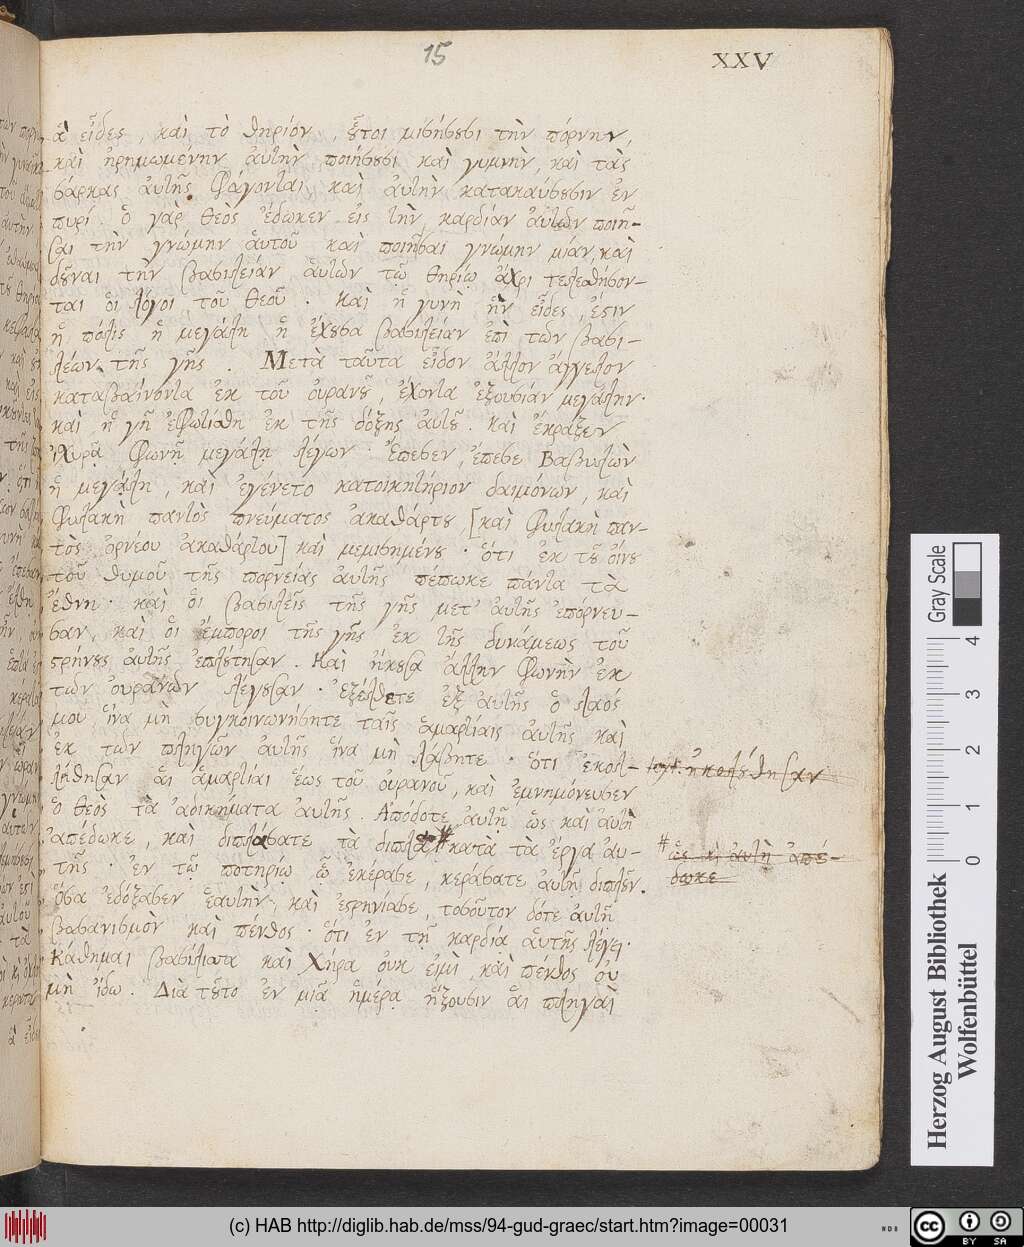 15
XXV
ἃ εἶδες, καὶ τὸ θηρίον, οὗτοι μισήσουσι τὴν πόρνην,
καὶ ἠρημωμένην αὐτὴν ποιήσουσι καὶ γυμνὴν, καὶ τὰς
σάρκας αὐτῆς φάγονται καὶ αὐτὴν κατακαύσουσιν ἐν
πυρί. ὁ γὰρ θεὸς ἔδωκεν εἰς τὴν καρδίαν αὐτῶν ποιῆ-
σαι τὴν γνώμην αὐτοῦ καὶ ποιῆσαι γνώμην μίαν, καὶ
δοῦναι τὴν βασιλείαν αὐτῶν τῷ θηρίῳ ἄχρι τελεσθήσον-
ται οἱ λόγοι τοῦ θεοῦ. Καὶ ἡ γυνὴ ἣν εἶδες, ἔστιν
ἡ πόλις ἡ μεγάλη ἡ ἔχουσα βασιλείαν ἐπὶ τῶν βασι-
λέων τῆς γῆς. Μετὰ ταῦτα εἶδον ἄλλον ἄγγελον
καταβαίνοντα ἐκ τοῦ οὐρανοῦ, ἔχοντα ἐξουσίαν μεγάλην·
καὶ ἡ γῆ ἐφωτίσθη ἐκ τῆς δόξης αὐτοῦ. καὶ ἔκραξεν
ἰσχυρᾷ φωνῇ μεγάλῃ λέγων· Ἔπεσεν, ἔπεσε Βαβυλὼν
ἡ μεγάλη, καὶ ἐγένετο κατοικητήριον δαιμόνων, καὶ
φυλακὴ παντὸς πνεύματος ἀκαθάρτου [καὶ φυλακὴ παν-
τὸς ὀρνέου ἀκαθάρτου] καὶ μεμισημένου· ὅτι ἐκ τοῦ οἴνου
τοῦ θυμοῦ τῆς πορνείας αὐτῆς πέπωκε πάντα τὰ
ἔθνη· καὶ οἱ βασιλεῖς τῆς γῆς μετ' αὐτῆς ἐπόρνευ-
σαν, καὶ οἱ ἔμποροι τῆς γῆς ἐκ τῆς δυνάμεως τοῦ
στρήνους αὐτῆς ἐπλούτησαν. Καὶ ἤκουσα ἄλλην φωνὴν ἐκ
τῶν οὐρανῶν λέγουσαν· ἐξέλθετε ἐξ αὐτῆς ὁ λαός
μου ἵνα μὴ συγκοινωνήσητε ταῖς ἁμαρτίαις αὐτῆς καὶ
ἐκ τῶν πληγῶν αὐτῆς ἵνα μὴ λάβητε· ὅτι ἐκολ-
λήθησαν αἱ ἁμαρτίαι ἕως τοῦ οὐρανοῦ, καὶ ἐμνημόνευσεν
ὁ θεὸς τὰ ἀδικήματα αὐτῆς. Ἀπόδοτε αὐτῇ ὡς καὶ αὐτὴ
ἀπέδωκε, καὶ διπλώσατε τὰ διπλᾶ # κατὰ τὰ ἔργα αὐ-
τῆς· ἐν τῷ ποτηρίῳ ᾧ ἐκέρασε, κεράσατε αὐτῇ διπλοῦν.
ὅσα ἐδόξασεν ἑαυτὴν, καὶ ἐστρηνίασε, τοσοῦτον δότε αὐτῇ
βασανισμὸν καὶ πένθος· ὅτι ἐν τῇ καρδίᾳ αὐτῆς λέγει·
Κάθημαι βασίλισσα καὶ χήρα οὐκ εἰμὶ, καὶ πένθος οὐ
μὴ ἴδω. Διὰ τοῦτο ἐν μιᾷ ἡμέρᾳ ἥξουσιν αἱ πληγαὶ
ἠκολούθησαν
# ὡς κὶ αὐτὴ ἀπέ-
δωκε
Gray Scale
0 1 2 3 4
Herzog August Bibliothek
Wolfenbüttel
(c) HAB http://diglib.hab.de/mss/94-gud-graec/start.htm?image=00031
WDB
cc BY SA